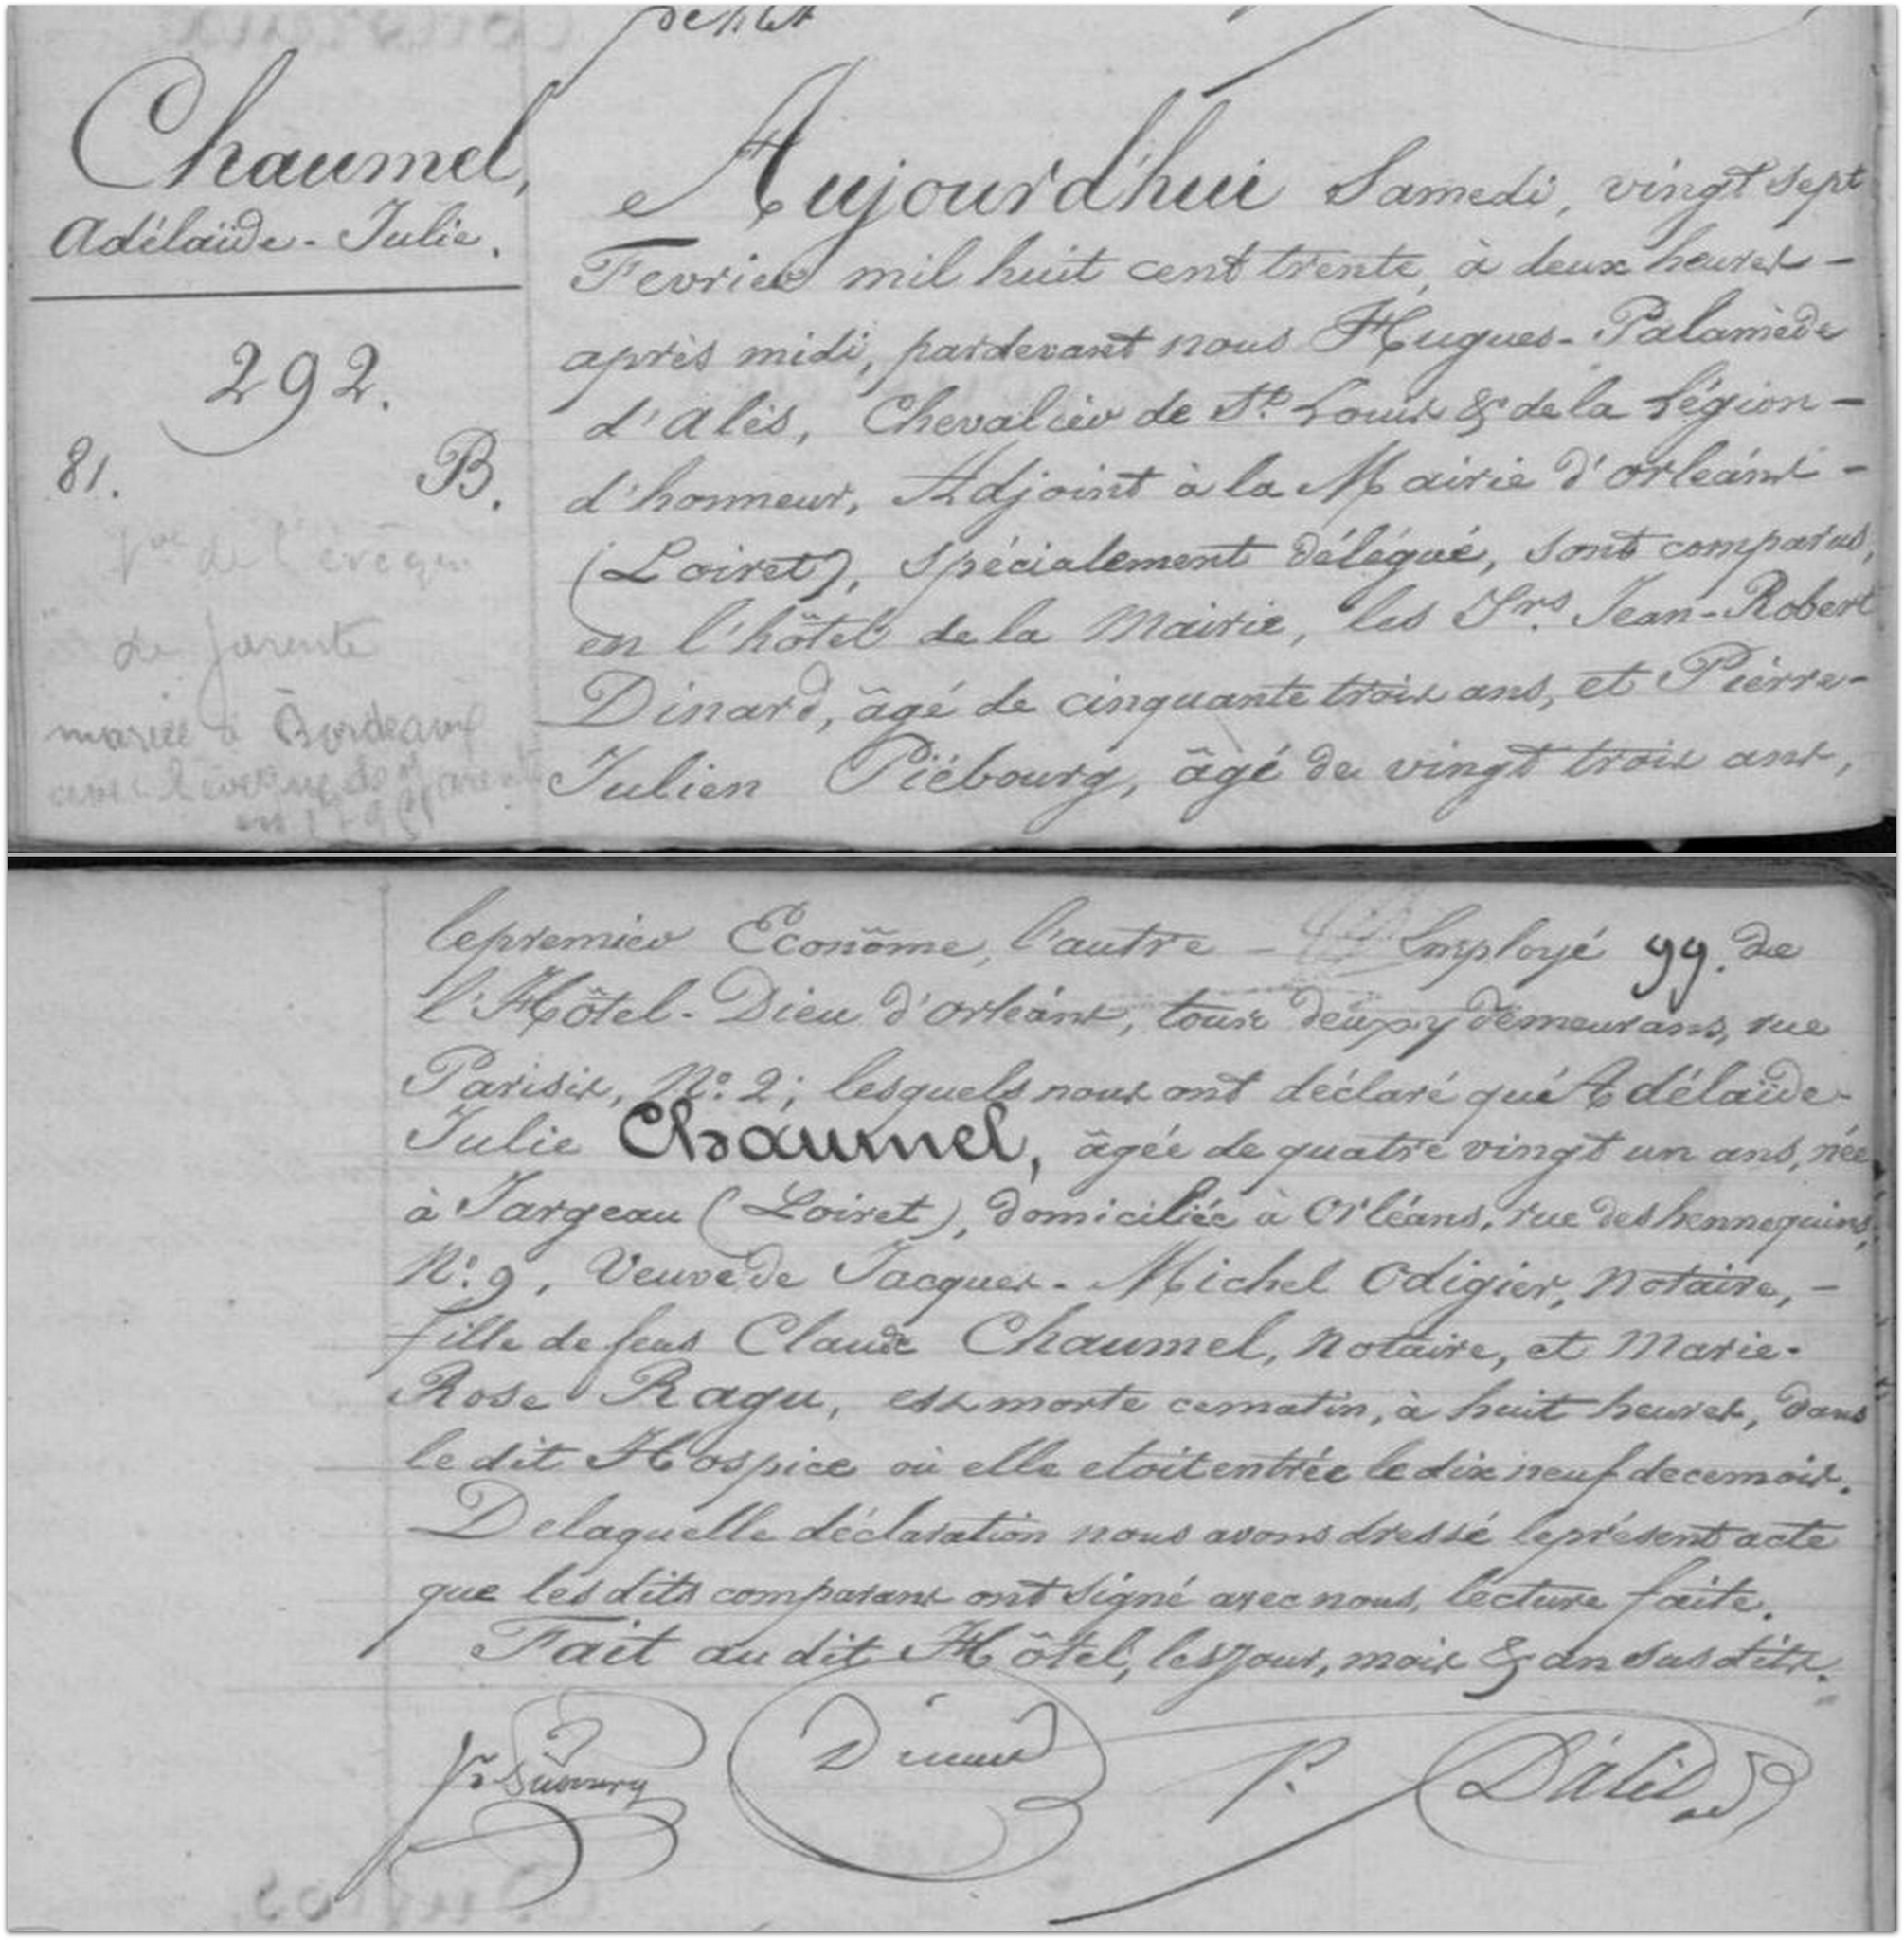 Chaumel,
Adélaïde - Julie.
292.
81. B.
de l'évêque
de Jarente
mariée à Bordeaux
avec l'évêque de Jarente
en
Aujourd'hui Samedi, vingt sept
Fevrier mil huit cent trente, à deux heures -
après midi, pardevant nous Hugues - Palamède
d'Alès, Chevalier de St. Louis & de la Légion -
d'honneur, Adjoint à la Mairie d'orléans -
(Loiret), spécialement délégué, sont comparus,
en l'hôtel de la Mairie, les Srs. Jean - Robert
Dinard, âgé de cinquante trois ans, et Piérre -
Julien Piébourg, âgé de vingt trois ans,
le premier Econôme, l'autre - Employé 99. de
l'Hôtel - Dieu d'orléans, tous deux y demeurans, rue
Parisis, No. 2; lesquels nous ont déclaré qué Adélaïde -
Julie Chaumel, âgée de quatre vingt un ans, née
à Jargeau (Loiret), domiciliée à Orléans, rue des hennequins,
No. 9, Veuve de Jacques - Michel Odigier, Notaire, -
fille de feus Claude Chaumel, Notaire, et Marie -
Rose Ragu, est morte ce matin, à huit heures, dans
le dit Hospice où elle etoit entrée le dix neuf de ce mois.
De laquelle déclaration nous avons dressé le présent acte
que les dits comparans ont signé avec nous, lecture faite.
Fait au dit Hôtel, les jour, mois & an susdits.
Dinard P. D'alès